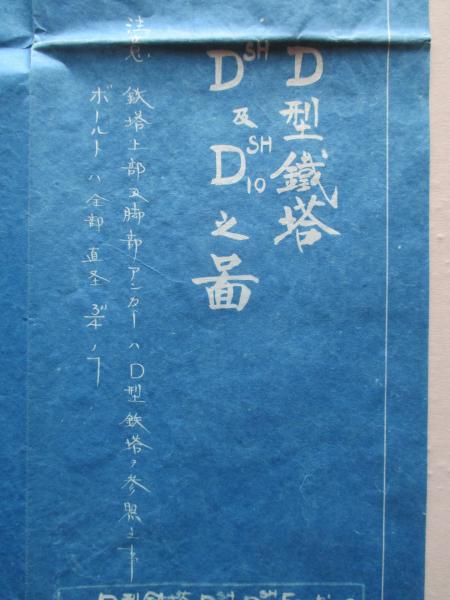 D型鐵塔
D^SH及D^SH_10之圖
注意 鉄塔上部及脚部アンカーハD型鉄塔ヲ参照ノ
ボールトハ全部直径3/4"ノ
D型鉄塔 D^SH D^SH